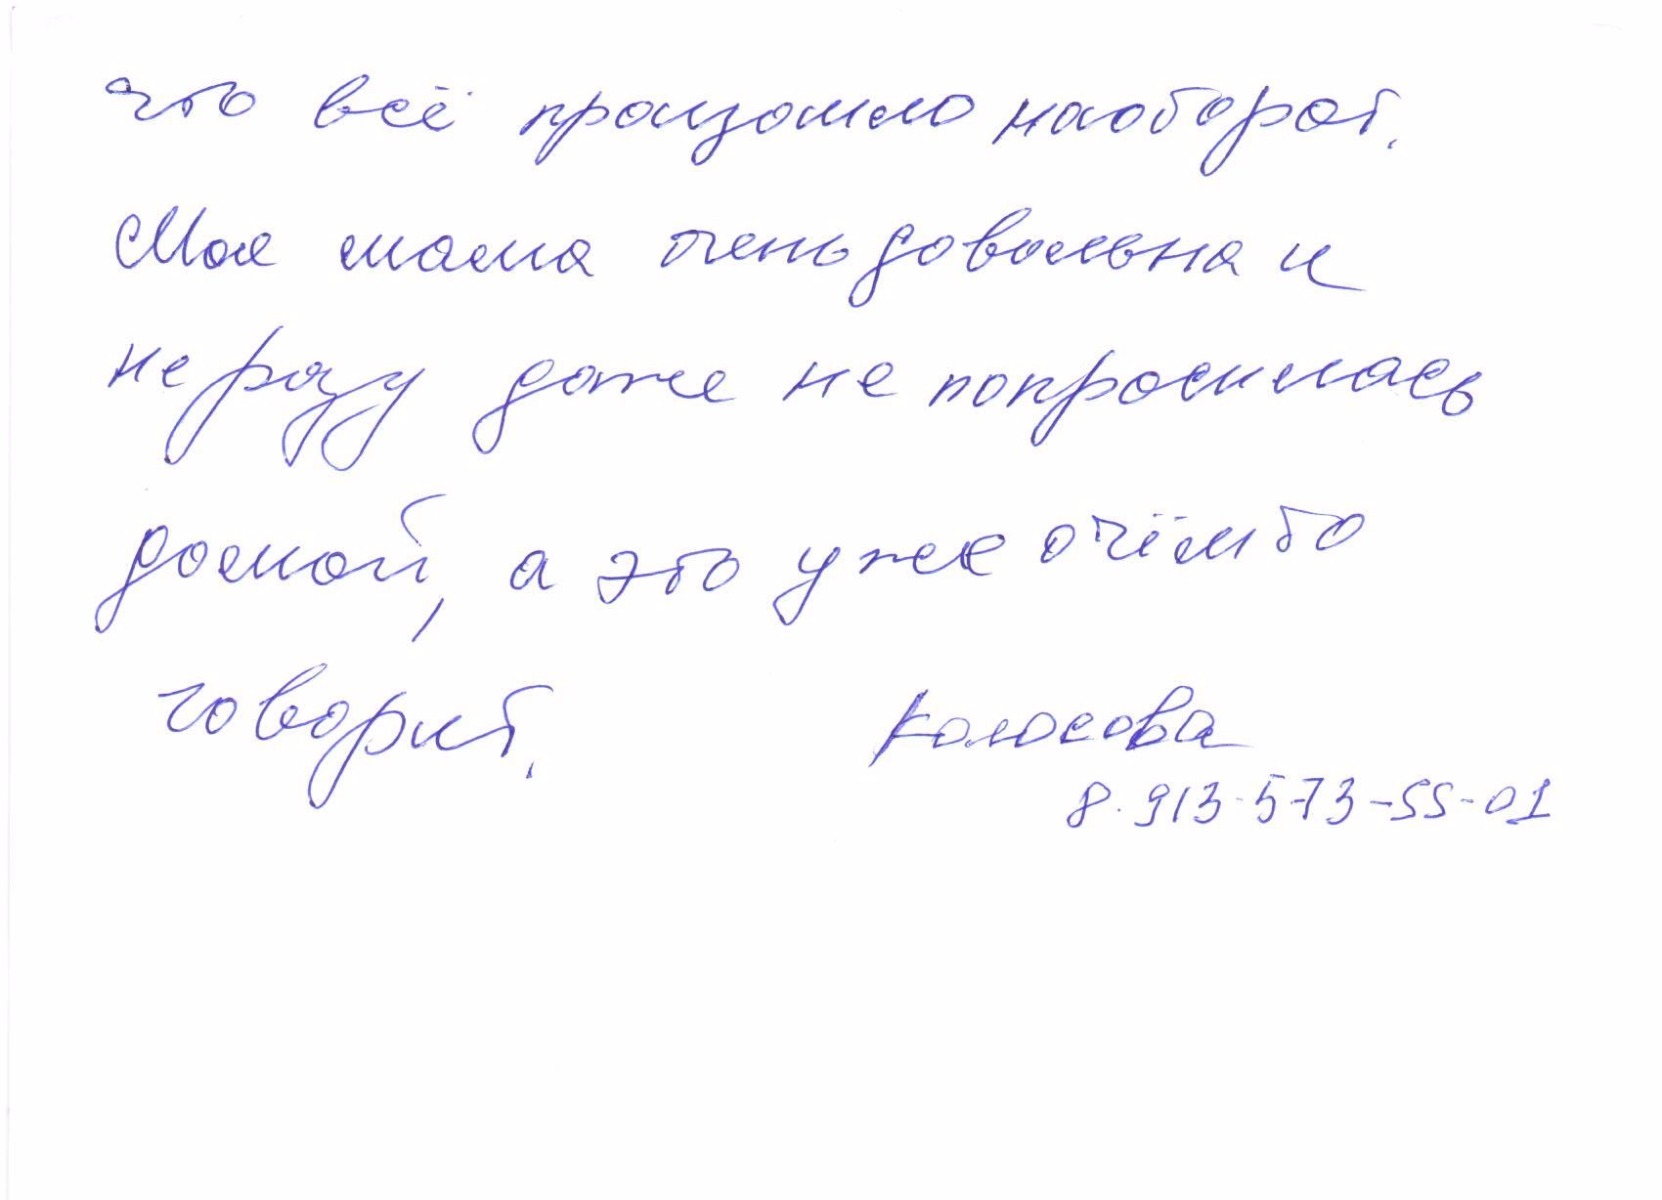 что всё произошло наоборот.
Моя мама очень довольна и
не разу даже не попросилась
домой, а это уже о чём то
говорит.
Колосова
8.913-573-55-01